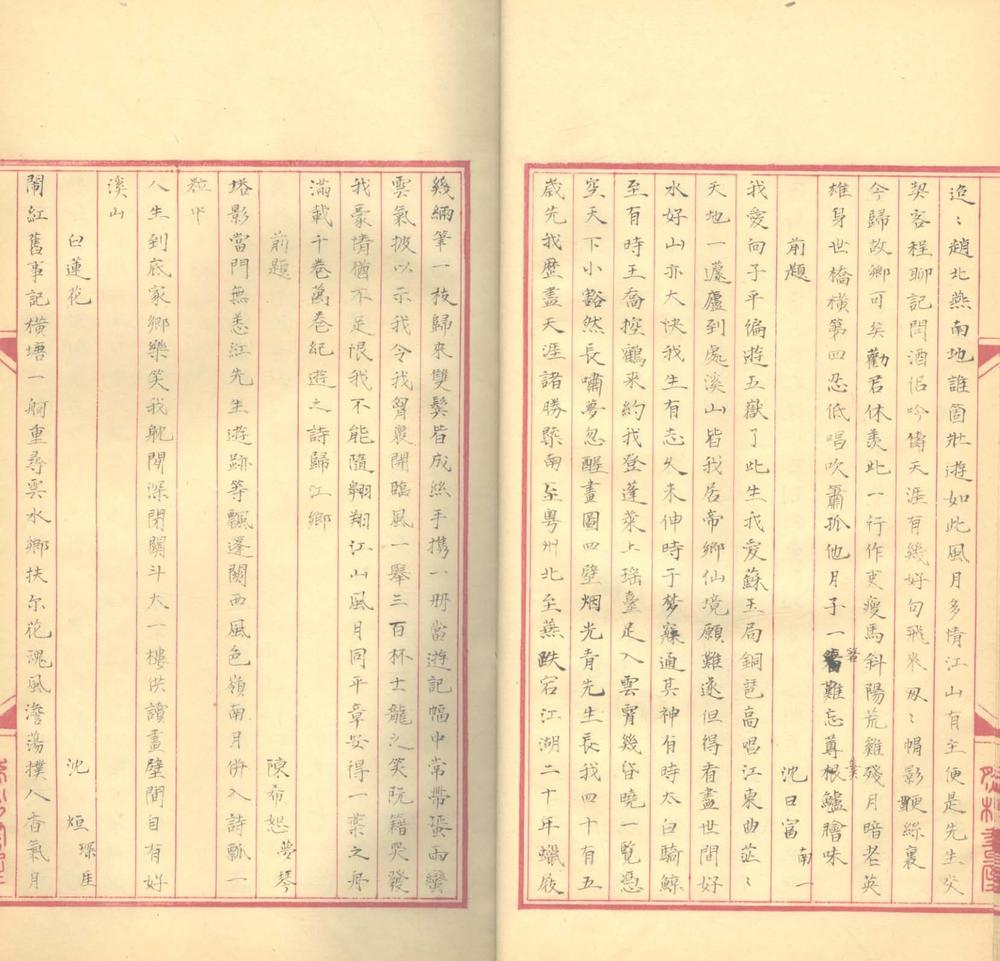 迢〻趙北燕南地誰箇壯遊如此風月多情江山有主便是先生交
契客程聊記問酒侶吟儔天涯有幾好句飛來㕛〻帽影鞭絲裏
今歸故鄉可矣勸君休羨此一行作吏瘦馬斜陽荒雞殘月暗老英
雄身世橋橫第四忍低唱吹簫孤他月子一箸難忘蓴根鱸膾味
前題 沈日富 南一
我愛向子平徧遊五嶽了此生我愛蘇玉局銅琶高唱江東曲茫〻
天地一蘧廬到處溪山皆我居帝鄉仙境願難遂但得看盡世間好
水好山亦大快我生有志久未伸時于夢寐通其神有時太白騎鯨
至有時王喬控鶴來約我登蓬萊上瑤臺足入雲霄幾宿曉一覽憑
空天下小豁然長嘯夢忽醒畫圖四壁烟光青先生長我四十有五
歲先我歷盡天涯諸勝槩南至粵州北至燕跌宕江湖二十年蠟屐
幾緉筆一枝歸來雙鬢皆成絲手攜一冊當遊記幅中常帶蜑雨蠻
雲氣披以示我令我胷襟開臨風一舉三百杯士龍之笑阮籍哭發
我豪情猶不足恨我不能隨翱翔江山風月同平章安得一葉之舟
滿載千卷萬卷紀遊之詩歸江鄉
前題 陳希恕 夢琴
塔影當門無恙紅先生遊跡等飄蓬關西風色嶺南月併入詩瓢一
粒中
人生到底家鄉樂笑我躭閒深閉關斗大一樓供讀畫壁間自有好
溪山
白蓮花 沈烜 琛厓
鬧紅舊事記橫塘一舸重尋雲水鄉扶尔花魂風澹蕩撲人香氣月